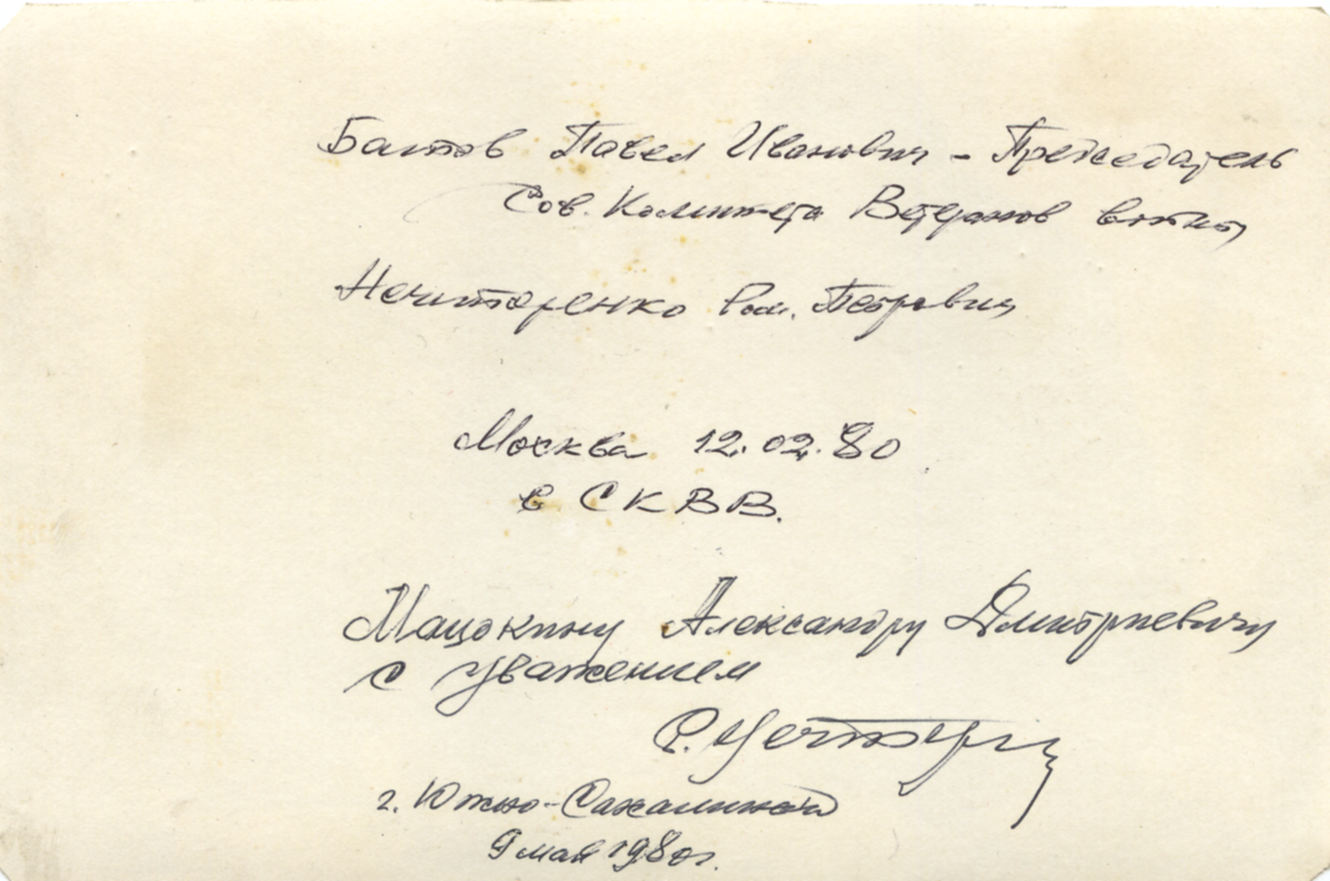 Батов Павел Иванович - Председатель
Сов. Комитета Ветеранов войны
Нечитаренко Ром. Петрович
Москва 12.02.80
в СКВВ.
Мацокину Александру Дмитриевичу
с уважением
Р.
г. Южно-Сахалинск
9 мая 1980г.